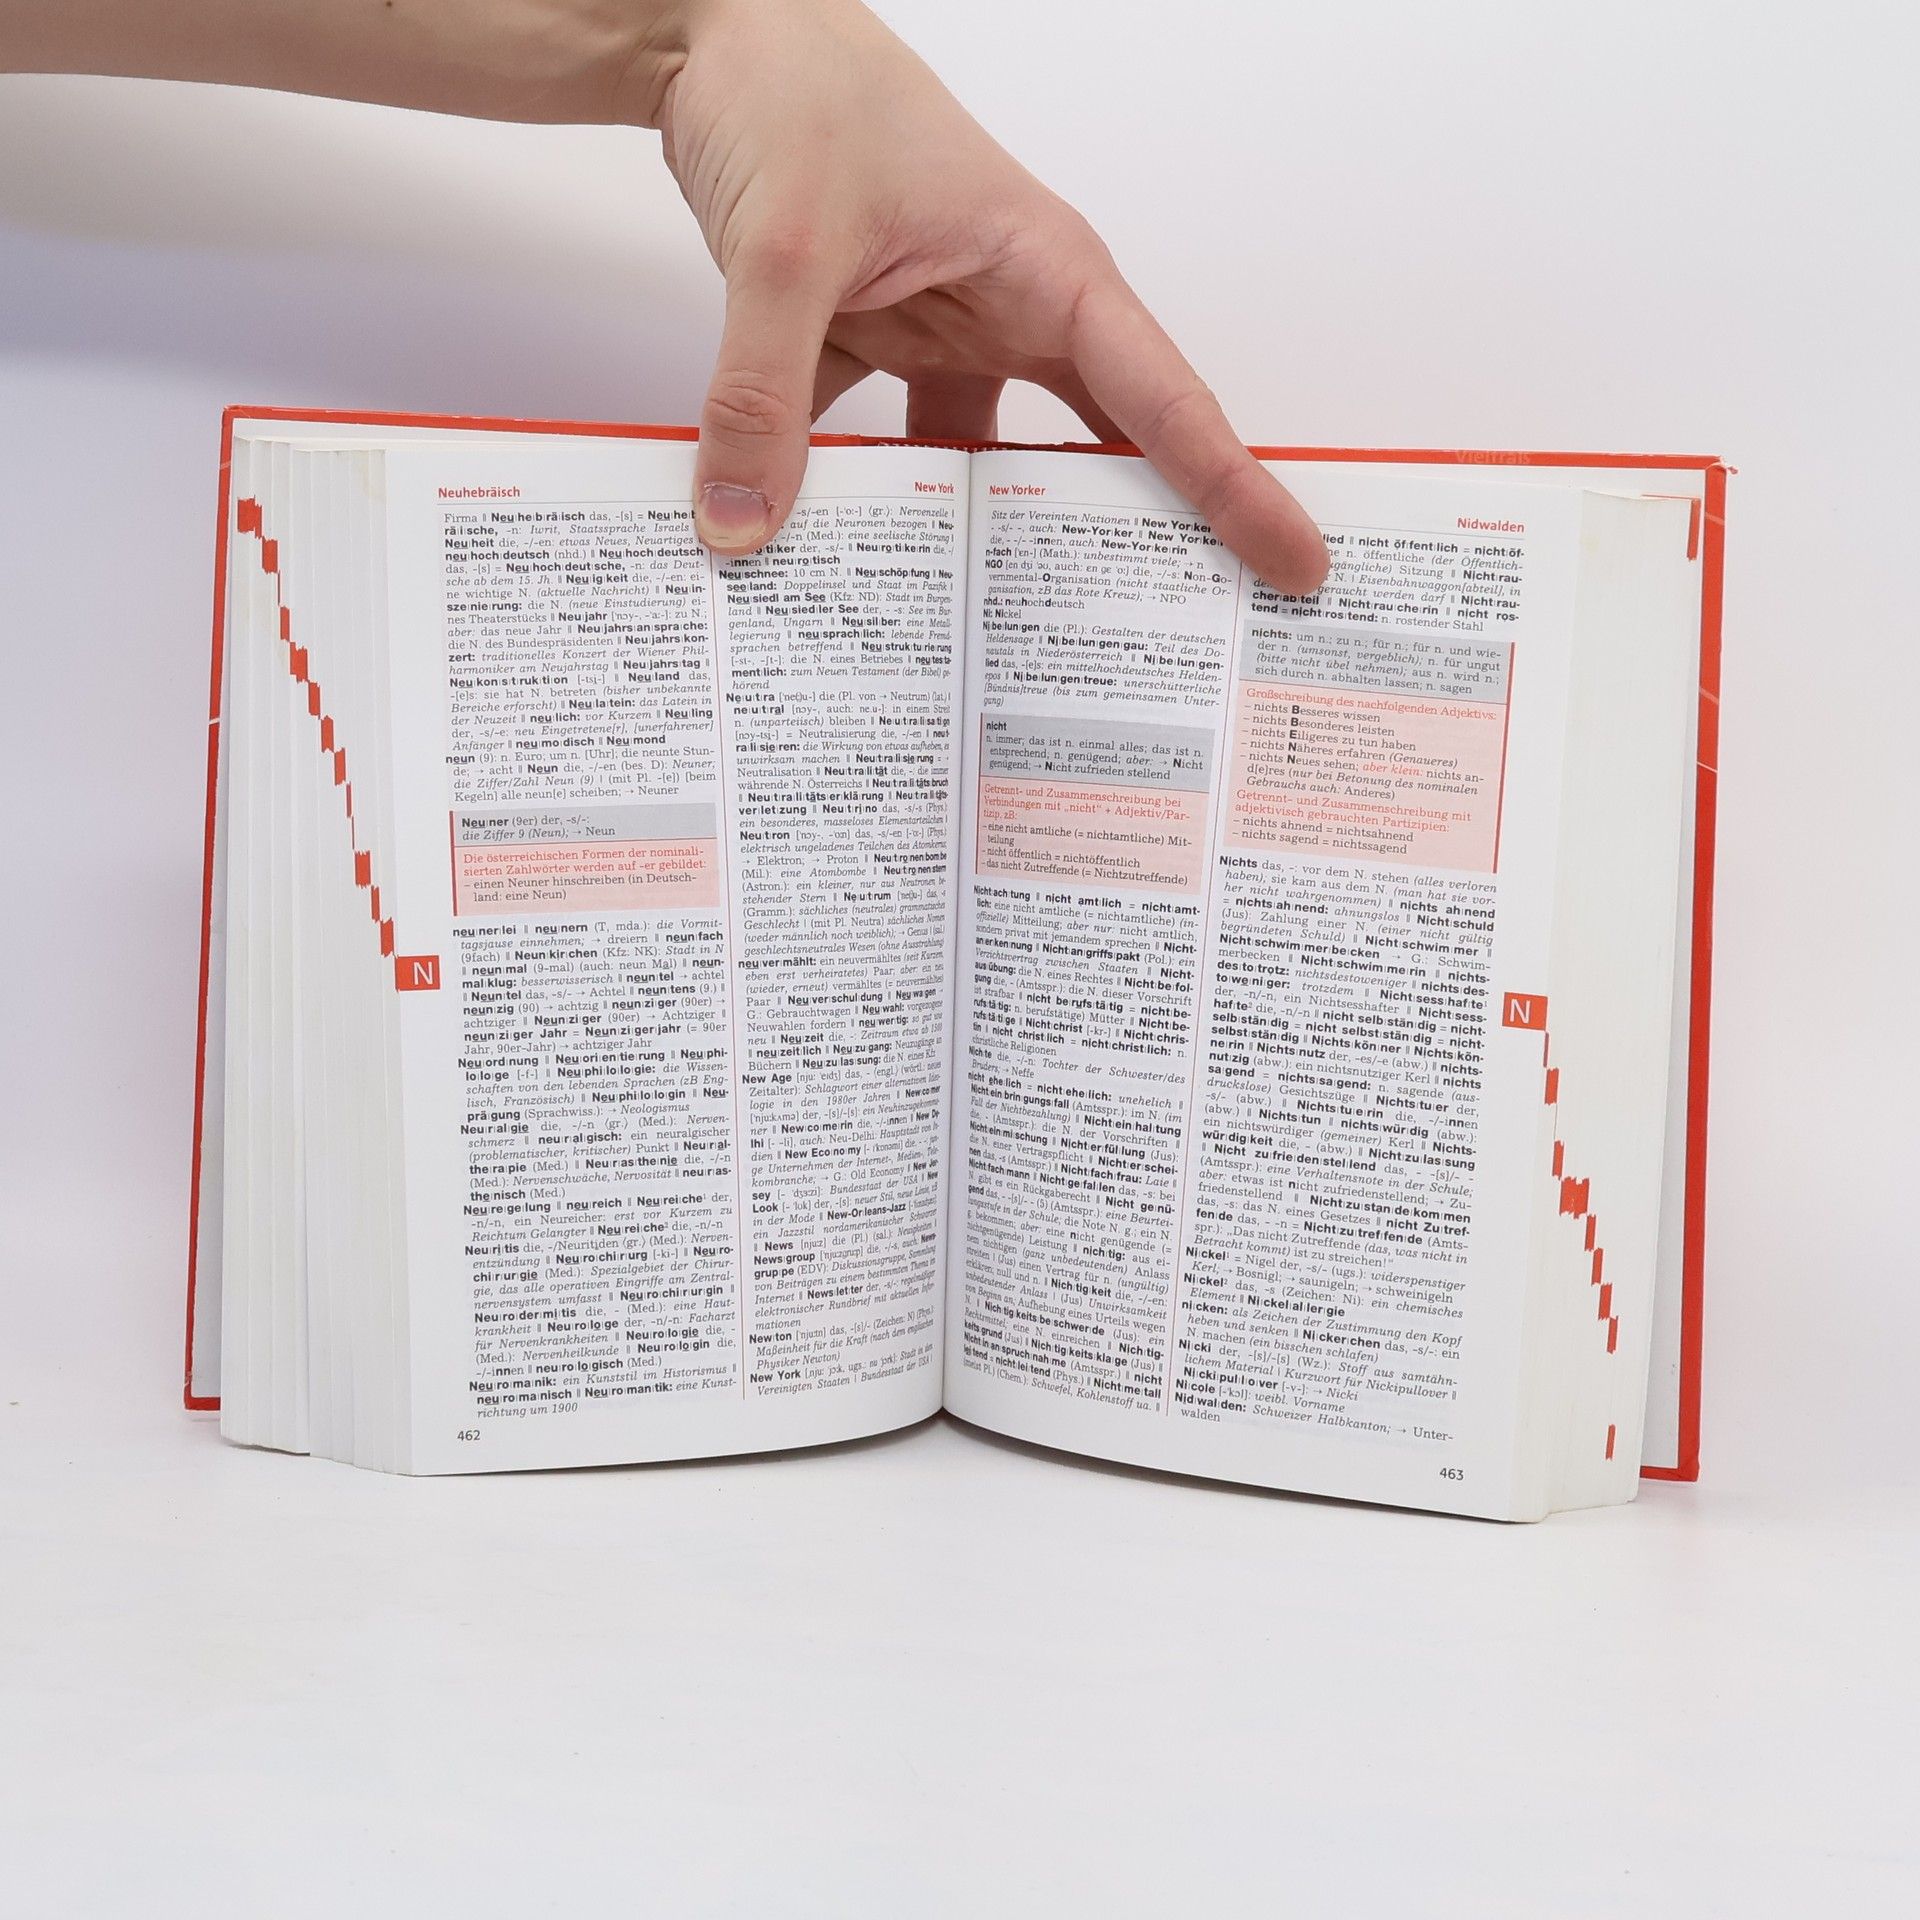 Neuhebräisch
New York
Firma || Neuhebräisch das, -[s] =
räische, -n: Iwrit, Staatssprache Israels
Neuheit die, -/-en: etwas Neues, Neuartiges
neuhochdeutsch (nhd.) || Neuhochdeutsch
das, -[s] = Neuhochdeutsche, -n: das Deut-
sche ab dem 15. Jh. || Neuigkeit die, -/-en: ei-
ne wichtige N. (aktuelle Nachricht) || Neuin-
szenierung: die N. (neue Einstudierung) ei-
nes Theaterstücks || Neujahr [noy-, -'a:-]: zu N.;
aber: das neue Jahr || Neujahrsansprache:
die N. des Bundespräsidenten || Neujahrskon-
zert: traditionelles Konzert der Wiener Phil-
harmoniker am Neujahrstag || Neujahrstag ||
Neukonstruktion [-tsi̯-] || Neuland das,
-[e]s: sie hat N. betreten (bisher unbekannte
Bereiche erforscht) || Neulatein: das Latein in
der Neuzeit || neulich: vor Kurzem || Neuling
der, -s/-e: neu Eingetretene[r], [unerfahrener]
Anfänger || neumodisch || Neumond
neun (9): n. Euro; um n. [Uhr]; die neunte Stun-
de; → acht || Neun die, -/-en (bes. D): Neuner;
die Ziffer/Zahl Neun (9) | (mit Pl. -[e]) [beim
Kegeln] alle neun[e] scheiben; → Neuner
Neuner (9er) der, -s/-:
die Ziffer 9 (Neun); → Neun
Die österreichischen Formen der nominali-
sierten Zahlwörter werden auf -er gebildet:
– einen Neuner hinschreiben (in Deutsch-
land: eine Neun)
neunerlei || neunern (T, mda.): die Vormit-
tagsjause einnehmen; → dreiern || neunfach
(9fach) || Neunkirchen (Kfz: NK): Stadt in N
|| neunmal (9-mal) (auch: neun Mal) || neun-
malklug: besserwisserisch || neuntel → achtel
|| Neuntel das, -s/- → Achtel || neuntens (9.) ||
neunzig (90) → achtzig || neunziger (90er) →
achtziger || Neunziger (90er) → Achtziger ||
neunziger Jahr = Neunzigerjahr (= 90er
Jahr, 90er-Jahr) → achtziger Jahr
Neuordnung || Neuorientierung || Neuphi-
lologe [-f-] || Neuphilologie: die Wissen-
schaften von den lebenden Sprachen (zB Eng-
lisch, Französisch) || Neuphilologin || Neu-
prägung (Sprachwiss.): → Neologismus
Neuralgie die, -/-n (gr.) (Med.): Nerven-
schmerz || neuralgisch: ein neuralgischer
(problematischer, kritischer) Punkt || Neural-
therapie (Med.) || Neurasthenie die, -/-n
(Med.): Nervenschwäche, Nervosität || neuras-
thenisch (Med.)
Neuregelung || neureich || Neureiche¹ der,
-n/-n, ein Neureicher: erst vor Kurzem zu
Reichtum Gelangter || Neureiche² die, -n/-n
Neuritis die, -/Neuritiden (gr.) (Med.): Nerven-
entzündung || Neurochirurg [-ki-] || Neuro-
chirurgie (Med.): Spezialgebiet der Chirur-
gie, das alle operativen Eingriffe am Zentral-
nervensystem umfasst || Neurochirurgin ||
Neurodermitis die, - (Med.): eine Haut-
krankheit || Neurologe der, -n/-n: Facharzt
für Nervenkrankheiten || Neurologie die, -
(Med.): Nervenheilkunde || Neurologin die,
-/-innen || neurologisch (Med.)
Neuromanik: ein Kunststil im Historismus ||
neuromanisch || Neuromantik: eine Kunst-
richtung um 1900
462
-s/-en [-'o:-] (gr.): Nervenzelle |
auf die Neuronen bezogen || Neu-
-/-n (Med.): eine seelische Störung |
der, -s/- || Neurotikerin die, -/
-innen || neurotisch
Neuschnee: 10 cm N. || Neuschöpfung || Neu-
seeland: Doppelinsel und Staat im Pazifik ||
Neusiedl am See (Kfz: ND): Stadt im Burgen-
land || Neusiedler See der, - -s: See im Bur-
genland, Ungarn || Neusilber: eine Metall-
legierung || neusprachlich: lebende Fremd-
sprachen betreffend || Neustrukturierung
[-st-, -ʃt-]: die N. eines Betriebes || neutesta-
mentlich: zum Neuen Testament (der Bibel) ge-
hörend
Neutra die (Pl. von → Neutrum) (lat.) |
neutral [noy-, auch: ne.u-]: in einem Streit
n. (unparteiisch) bleiben || Neutralisation
[noy-tsi̯-] = Neutralisierung die, -/-en || neut-
ralisieren: die Wirkung von etwas aufheben, es
unwirksam machen || Neutralisierung =
Neutralisation || Neutralität die, -: die immer
währende N. Österreichs || Neutralitätsbruch
|| Neutralitätserklärung || Neutralitäts-
verletzung || Neutrino das, -s/-s (Phys.):
ein besonderes, masseloses Elementarteilchen |
Neutron das, -s/-en (Phys.)
elektrisch ungeladenes Teilchen des Atomkerns;
→ Elektron, → Proton || Neutronenbombe
(Mil.): eine Atombombe || Neutronenstern
(Astron.): ein kleiner, nur aus Neutronen be-
stehender Stern || Neutrum das, -s
(Gramm.): sächliches (neutrales) grammatisches
Geschlecht | (mit Pl. Neutra) sächliches Nomen
(weder männlich noch weiblich); → Genus | (sal.)
geschlechtsneutrales Wesen (ohne Ausstrahlung)
neuvermählt: ein neuvermähltes (seit Kurzem,
eben erst verheiratetes) Paar; aber: ein neu
(wieder, erneut) vermähltes (= neuvermähltes)
Paar || Neuverschuldung || Neuwagen →
G.: Gebrauchtwagen || Neuwahl: vorgezogene
Neuwahlen fordern || neuwertig: so gut wie
neu || Neuzeit die, -: Zeitraum etwa ab 1500
|| neuzeitlich || Neuzugang: Neuzugänge an
Büchern || Neuzulassung: die N. eines Kfz
New Age das, - (engl.) (wörtl.: neues
Zeitalter): Schlagwort einer alternativen Ideo-
logie in den 1980er Jahren || Newcomer
der, -[s]/-[s]: ein Neuhinzugekomme-
ner || Newcomerin die, -/-innen || New De-
lhi [- -li], auch: Neu-Delhi: Hauptstadt von In-
dien || New Economy die, - -: jun-
ge Unternehmen der Internet-, Medien-, Tele-
kombranche; → G.: Old Economy || New Jer-
sey: Bundesstaat der USA || New
Look der, -[s]: neuer Stil, neue Linie
in der Mode || New-Orleans-Jazz
ein Jazzstil nordamerikanischer Schwarzer
|| News [nju:z] die (Pl.) (sal.): Neuigkeiten |
Newsgroup die, -/-s, auch: News-
gruppe (EDV): Diskussionsgruppe, Sammlung
von Beiträgen zu einem bestimmten Thema im
Internet || Newsletter der, -s/-: regelmäßiger
elektronischer Rundbrief mit aktuellen Infor-
mationen
Newton ['nju:tn] das, -[s]/- (Zeichen: N) (Phys.):
Maßeinheit für die Kraft (nach dem englischen
Physiker Newton)
New York: Stadt in den
Vereinigten Staaten | Bundesstaat der USA |
N
New Yorker
Nidwalden
Sitz der Vereinten Nationen || New Yorker
- -s/- -, auch: New-Yorker || New Yorke
die, - -/- -innen, auch: New-Yorkerin
n-fach ['ɛn-] (Math.): unbestimmt viele; → n
NGO die, -/-s: Non-Go-
vernmental-Organisation (nicht staatliche Or-
ganisation, zB das Rote Kreuz); → NPO
nhd.: neuhochdeutsch
Ni: Nickel
Nibelungen die (Pl.): Gestalten der deutschen
Heldensage || Nibelungengau: Teil des Do-
nautals in Niederösterreich || Nibelungen-
lied das, -[e]s: ein mittelhochdeutsches Helden-
epos || Nibelungentreue: unerschütterliche
[Bündnis]treue (bis zum gemeinsamen Unter-
gang)
nicht
n. immer; das ist n. einmal alles; das ist n.
entsprechend; n. genügend; aber: → Nicht
genügend; → Nicht zufrieden stellend
Getrennt- und Zusammenschreibung bei
Verbindungen mit „nicht“ + Adjektiv/Par-
tizip, zB:
– eine nicht amtliche (= nichtamtliche) Mit-
teilung
– nicht öffentlich = nichtöffentlich
– das nicht Zutreffende (= Nichtzutreffende)
Nichtachtung || nicht amtlich = nichtamt-
lich: eine nicht amtliche (= nichtamtliche) (in-
offizielle) Mitteilung; aber nur: nicht amtlich,
sondern privat mit jemandem sprechen || Nicht-
anerkennung || Nichtangriffspakt (Pol.): ein
Verzichtsvertrag zwischen Staaten || Nicht-
ausübung: die N. eines Rechtes || Nichtbefol-
gung die, - (Amtsspr.): die N. dieser Vorschrift
ist strafbar || nicht berufstätig = nichtbe-
rufstätig: n. berufstätige) Mütter || Nichtbe-
rufstätige || Nichtchrist [-kr-] || Nichtchris-
tin || nicht christlich = nichtchristlich: n.
christliche Religionen
Nichte die, -/-n: Tochter der Schwester/des
Bruders; → Neffe
nicht ehelich = nichtehelich: unehelich ||
Nichteinbringungsfall (Amtsspr.): im N. (im
Fall der Nichtbezahlung) || Nichteinhaltung
die, - (Amtsspr.): die N. der Vorschriften ||
Nichteinmischung || Nichterfüllung (Jus):
die N. einer Vertragspflicht || Nichterschei-
nen das, -s (Amtsspr.) || Nichtfachfrau: Laie ||
Nichtfachmann || Nichtgefallen das, -s: bei
N. gibt es ein Rückgaberecht || Nicht genü-
gend das, - -[s]/- - (5) (Amtsspr.): eine Beurtei-
lungsstufe in der Schule; die Note N. g.; ein N.
g. bekommen; aber: eine nicht genügende (=
nichtgenügende) Leistung || nichtig: aus ei-
nem nichtigen (ganz unbedeutenden) Anlass
streiten | (Jus) einen Vertrag für n. (ungültig)
erklären; null und n. || Nichtigkeit die, -/-en:
unbedeutender Anlass | (Jus) Unwirksamkeit
von Beginn an; Aufhebung eines Urteils wegen
N. || Nichtigkeitsbeschwerde (Jus): ein
Rechtsmittel; eine N. einreichen || Nichtig-
keitsgrund (Jus) || Nichtigkeitsklage (Jus) ||
Nichtinanspruchnahme (Amtsspr.) || nicht
leitend = nichtleitend (Phys.) || Nichtmetall
(meist Pl.) (Chem.): Schwefel, Kohlenstoff ua. ||
lied || nicht öffentlich = nichtöf-
ne n. öffentliche (der Öffentlich-
ugängliche) Sitzung || Nichtrau-
r N. | Eisenbahnwaggon[abteil], in
geraucht werden darf || Nichtrau-
cherabteil || Nichtraucherin || nicht ros-
tend = nichtrostend: n. rostender Stahl
nichts: um n.; zu n.; für n.; für n. und wie-
der n. (umsonst, vergeblich); n. für ungut
(bitte nicht übel nehmen); aus n. wird n.;
sich durch n. abhalten lassen; n. sagen
Großschreibung des nachfolgenden Adjektivs:
– nichts Besseres wissen
– nichts Besonderes leisten
– nichts Eiligeres zu tun haben
– nichts Näheres erfahren (Genaueres)
– nichts Neues sehen; aber klein: nichts an-
d[e]res (nur bei Betonung des nominalen
Gebrauchs auch: Anderes)
Getrennt- und Zusammenschreibung mit
adjektivisch gebrauchten Partizipien:
– nichts ahnend = nichtsahnend
– nichts sagend = nichtssagend
Nichts das, -: vor dem N. stehen (alles verloren
haben); sie kam aus dem N. (man hat sie vor-
her nicht wahrgenommen) || nichts ahnend
= nichtsahnend: ahnungslos || Nichtschuld
(Jus): Zahlung einer N. (einer nicht gültig
begründeten Schuld) || Nichtschwimmer ||
Nichtschwimmerbecken → G.: Schwim-
merbecken || Nichtschwimmerin || nichts-
destotrotz: nichtsdestoweniger || nichtsdes-
toweniger: trotzdem || Nichtsesshafte¹
der, -n/-n, ein Nichtsesshafter || Nichtsess-
hafte² die, -n/-n || nicht selbständig = nicht-
selbständig = nicht selbstständig = nicht-
selbstständig || Nichtskönner || Nichtskön-
nerin || Nichtsnutz der, -es/-e (abw.) || nichts-
nutzig (abw.): ein nichtsnutziger Kerl || nichts
sagend = nichtssagend: n. sagende (aus-
druckslose) Gesichtszüge || Nichtstuer der,
-s/- (abw.) || Nichtstuerin die, -/-innen
(abw.) || Nichtstun || nichtswürdig (abw.):
ein nichtswürdiger (gemeiner) Kerl || Nichts-
würdigkeit die, - (abw.) || Nichtzulassung
|| Nicht zufriedenstellend das, - -[s]/- -
(Amtsspr.): eine Verhaltensnote in der Schule;
aber: etwas ist nicht zufriedenstellend; → Zu-
friedenstellend || Nichtzustandekommen
das, -s: das N. eines Gesetzes || nicht Zutref-
fende das, - -n = Nichtzutreffende (Amts-
spr.): „Das nicht Zutreffende (das, was nicht in
Betracht kommt) ist zu streichen!“
Nickel¹ = Nigel der, -s/- (ugs.): widerspenstiger
Kerl; → Bosnigl; → saunigeln; → schweinigeln
Nickel² das, -s (Zeichen: Ni): ein chemisches
Element || Nickelallergie
nicken: als Zeichen der Zustimmung den Kopf
heben und senken || Nickerchen das, -s/-: ein
N. machen (ein bisschen schlafen)
Nicki der, -[s]/-[s] (Wz.): Stoff aus samtähn-
lichem Material | Kurzwort für Nickipullover ||
Nickipullover [-v-]: → Nicki
Nicole [-'kɔl]: weibl. Vorname
Nidwalden: Schweizer Halbkanton; → Unter-
walden
463
N